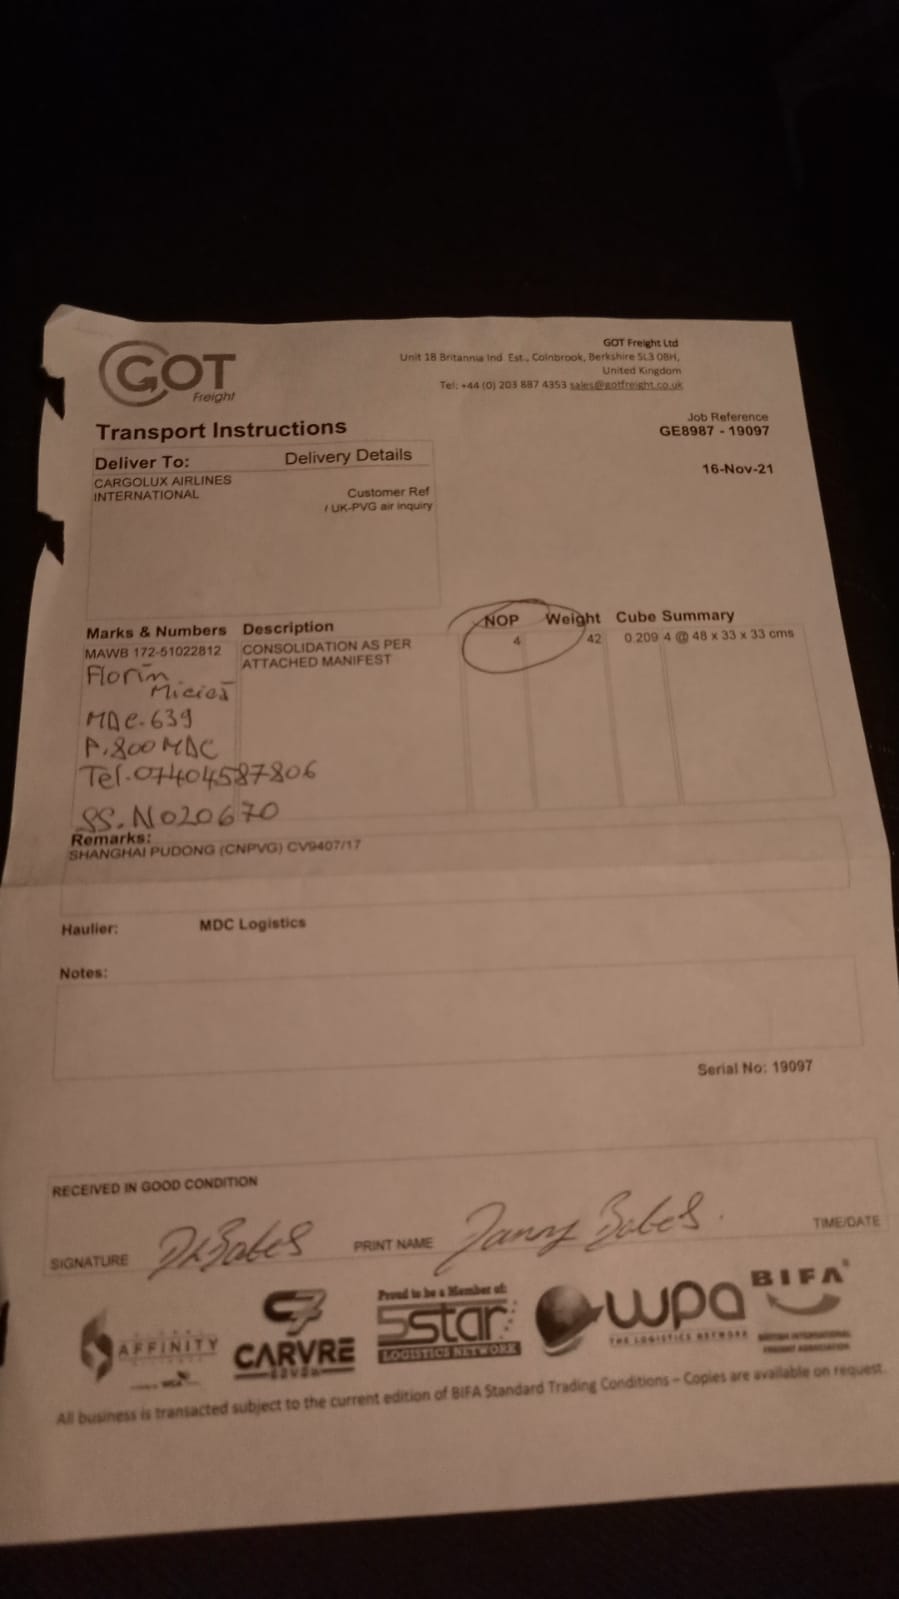 GOT
Freight
GOT Freight Ltd
Unit 18 Britannia Ind. Est., Colnbrook, Berkshire SL3 0BH,
United Kingdom
Tel: +44 (0) 203 887 4353 sales@gotfreight.co.uk
Transport Instructions
Job Reference
GE8987 - 19097
Deliver To: Delivery Details
16-Nov-21
CARGOLUX AIRLINES
INTERNATIONAL
Customer Ref
/ UK-PVG air inquiry
Marks & Numbers Description NOP Weight Cube Summary
MAWB 172-51022812 CONSOLIDATION AS PER 4 42 0.209 4 @ 48 x 33 x 33 cms
ATTACHED MANIFEST
Florin
MDC.639
P.800 MDC
Tel.07404587806
SS.NO20670
Remarks:
SHANGHAI PUDONG (CNPVG) CV9407/17
Haulier: MDC Logistics
Notes:
Serial No: 19097
RECEIVED IN GOOD CONDITION
SIGNATURE PRINT NAME Danny TIME/DATE
AFFINITY
CARVRE
SEVEN
Proud to be a Member of:
5star
LOGISTICS NETWORK
wpa
THE LOGISTICS NETWORK
BIFA
BRITISH INTERNATIONAL
FREIGHT ASSOCIATION
All business is transacted subject to the current edition of BIFA Standard Trading Conditions – Copies are available on request.